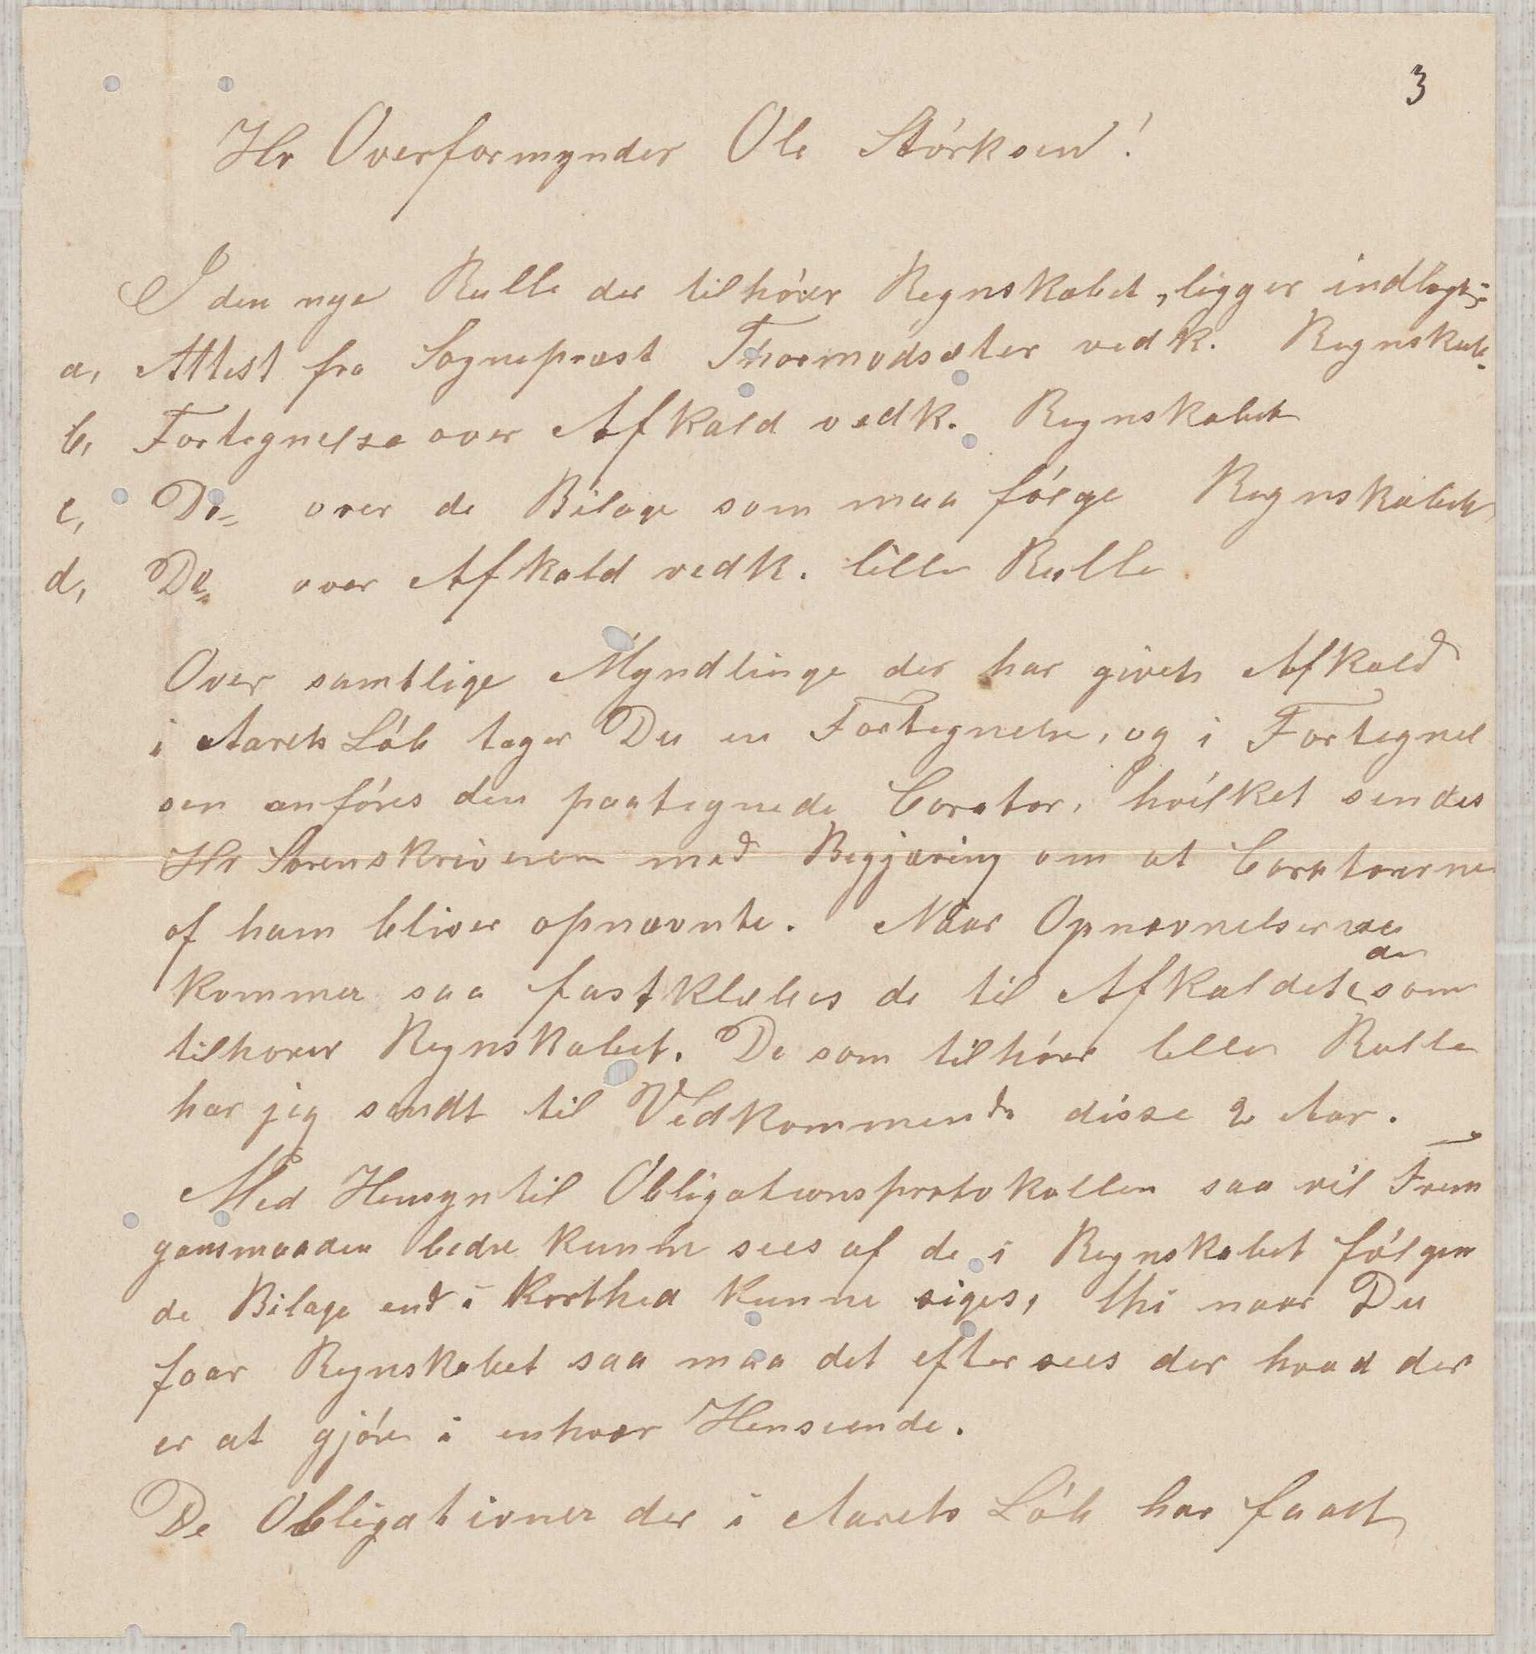 3
Hr Overformynder Ole Störksen!
I den nye Rulle der tilhörer Regnskabet, ligger indlagt:
a, Attest fra Sognepræst Thormodsæter vedk. Regnskab.
b, Fortegnelse over Afkald vedk. Regnskabet
c, Do= over de Bilage som maa fölge Regnskabet
d, Do= over Afkald vedk. lille Rulle
Over samtlige Myndlinge der har givet Afkald
i Aarets Löb tager Du en Fortegnelse, og i Fortegnel
sen anföres den paategnede Corator, hvilket sendes
Hr Sorenskriveren med Begjæring om at Coratorerne
af ham bliver opnævnte. Naar Opnævnelserne
kommer saa fastklæbes de til Afkaldet, de som
tilhorer Regnskabet. De som tilhörer lille Rulle
har jeg sendt til Vedkommende disse 2 Aar.
Med Hensyn til Obligationsprotokollen saa vil Frem
gansmaaden bedre kunne sees af de i Regnskabet fölgen
de Bilage end i Korthed kunne siges, thi naar Du
faar Regnskabet saa maa det eftersees der hvad der
er at gjöre i enhver Henseende.
De Obligationer der i Aarets Löb har faaet